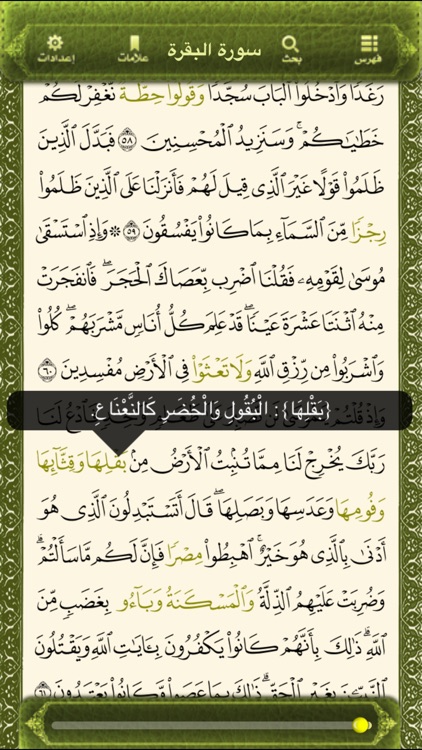 فهرس
بحث
سورة البقرة
علامات
إعدادات
رَغَدًا وَٱدْخُلُوا۟ ٱلْبَابَ سُجَّدًا وَقُولُوا۟ حِطَّةٌ نَّغْفِرْ لَكُمْ
خَطَٰيَٰكُمْ ۚ وَسَنَزِيدُ ٱلْمُحْسِنِينَ ٥٨ فَبَدَّلَ ٱلَّذِينَ
ظَلَمُوا۟ قَوْلًا غَيْرَ ٱلَّذِى قِيلَ لَهُمْ فَأَنزَلْنَا عَلَى ٱلَّذِينَ ظَلَمُوا۟
رِجْزًا مِّنَ ٱلسَّمَآءِ بِمَا كَانُوا۟ يَفْسُقُونَ ٥٩ ۞ وَإِذِ ٱسْتَسْقَىٰ
مُوسَىٰ لِقَوْمِهِۦ فَقُلْنَا ٱضْرِب بِّعَصَاكَ ٱلْحَجَرَ ۖ فَٱنفَجَرَتْ
مِنْهُ ٱثْنَتَا عَشْرَةَ عَيْنًا ۖ قَدْ عَلِمَ كُلُّ أُنَاسٍ مَّشْرَبَهُمْ ۖ كُلُوا۟
وَٱشْرَبُوا۟ مِن رِّزْقِ ٱللَّهِ وَلَا تَعْثَوْا۟ فِى ٱلْأَرْضِ مُفْسِدِينَ ٦٠
{بَقْلِهَا}: الْبُقُولِ وَالْخُضَرِ كَالنَّعْنَاعِ.
وَإِذْ قُلْتُمْ لَنَا
رَبَّكَ يُخْرِجْ لَنَا مِمَّا تُنۢبِتُ ٱلْأَرْضُ مِنۢ بَقْلِهَا وَقِثَّآئِهَا
وَفُومِهَا وَعَدَسِهَا وَبَصَلِهَا ۖ قَالَ أَتَسْتَبْدِلُونَ ٱلَّذِى هُوَ
أَدْنَىٰ بِٱلَّذِى هُوَ خَيْرٌ ۚ ٱهْبِطُوا۟ مِصْرًا فَإِنَّ لَكُم مَّا سَأَلْتُمْ ۗ
وَضُرِبَتْ عَلَيْهِمُ ٱلذِّلَّةُ وَٱلْمَسْكَنَةُ وَبَآءُو بِغَضَبٍ مِّنَ
ٱللَّهِ ۗ ذَٰلِكَ بِأَنَّهُمْ كَانُوا۟ يَكْفُرُونَ بِـَٔايَٰتِ ٱللَّهِ وَيَقْتُلُونَ
ٱلنَّبِيِّـۧنَ بِغَيْرِ ٱلْحَقِّ ۗ ذَٰلِكَ بِمَا عَصَوا۟ وَّكَانُوا۟ يَعْتَدُونَ ٦١